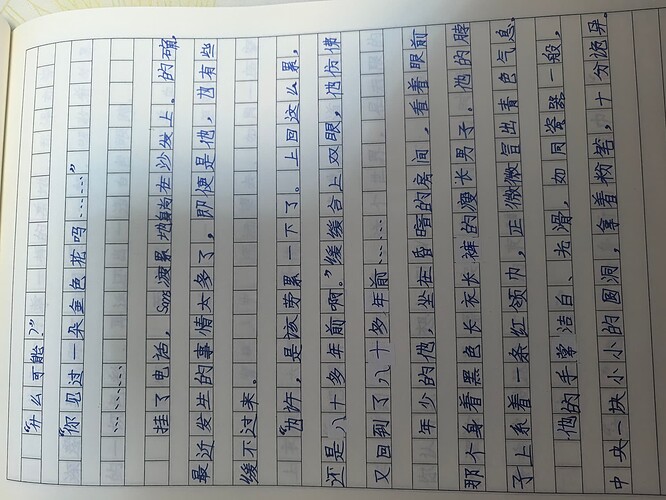 “什么可能？”
“你见过一朵金色花吗……”
…………
挂了电话，Sans疲累地躺在沙发上。的确，
最近发生的事情太多了，即便是他，也有些
缓不过来。
“也许，是该劳累一下了。上回这么累，
还是八十多年前啊。”缓缓合上双眼，他仿佛
又回到了八十多年前……
年少的他，坐在昏暗的房间，看着眼前
那个身着黑色长衣长裤的瘦长男子，他的脖
子上系着一条红领巾，正微微冒出青色气息。
他的手常洁白、光滑，如同瓷器一般，
中央一块小小的圆洞，拿着粉笔，十分诡异。